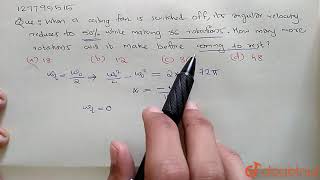 127795515
Que: when a ceiling fan is switched off, its angular velocity
reduces to 50% while making 36 rotations. How many more
rotations will it make before coming to rest?
(a) 18 (b) 12 (c) (d) 48
ω = ω₀/2 → ω₀²/4 - ω₀² = 2 72π
α = -
ω = 0